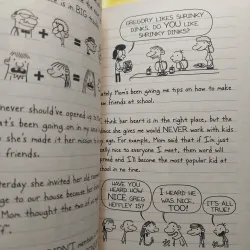 e is in BIG
never should've opened up to
at's been going on in my
so she's made it her mission to
friends.
Yesterday she invited her old
age to our house because her
Mom thought the two of
GREGORY LIKES SHRINKY
DINKS. DO YOU LIKE
SHRINKY DINKS?
ately Mom's been giving me tips on how to make
friends at school.
think her heart is in the right place, but the
ce she gives me would NEVER work with kids
age. For example, Mom said that if I'm just
ally nice to everyone I meet, then word will
read and I'll become the most popular kid at
hool in no time.
HAVE YOU
HEARD HOW
NICE GREG
HEFFLEY IS?
I HEARD HE
WAS NICE,
TOO!
IT'S ALL
TRUE!